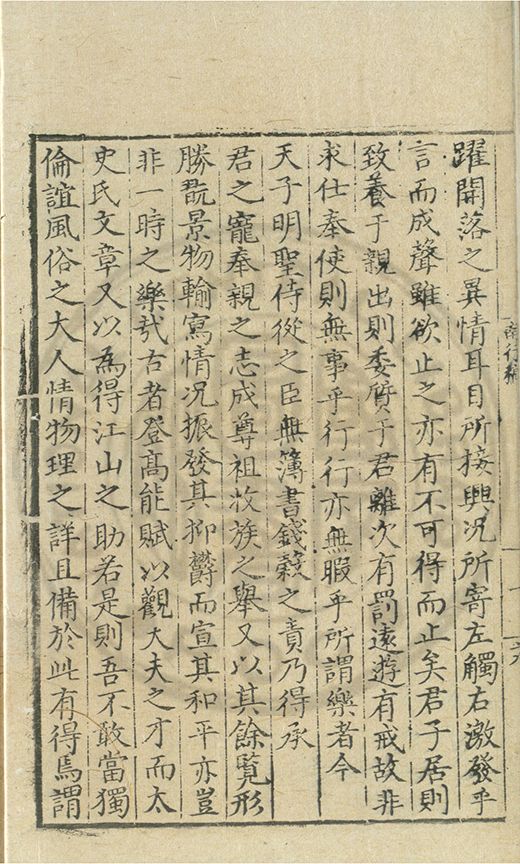 躍開落之異情耳目所接興况所寄左觸右激發乎
言而成聲雖欲止之亦有不可得而止矣君子居則
致養于親出則委質于君離次有罰遠遊有戒故非
求仕奉使則無事乎行行亦無暇乎所謂樂者今
天子明聖侍從之臣無簿書錢穀之責乃得承
君之寵奉親之志成尊祖收族之舉又以其餘覽形
勝翫景物輸寫情况振發其抑鬱而宣其和平亦豈
非一時之樂哉古者登髙能賦以觀大夫之才而太
史氏文章又以為得江山之助若是則吾不敢當獨
倫誼風俗之大人情物理之詳且備於此有得焉謂